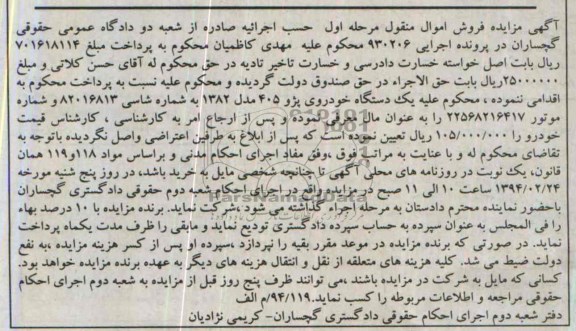 آگهی مزایده فروش اموال منقول مرحله اول حسب اجرائیه صادره از شعبه دو دادگاه عمومی حقوقی
گچساران در پرونده اجرایی ۹۳۰۲۰۶ محکوم علیه مهدی کاظمیان محکوم به پرداخت مبلغ ۷۰۱۶۱۸۱۱۴
ریال بابت اصل خواسته خسارت دادرسی و خسارت تاخیر تادیه در حق محکوم له آقای حسن کلاتی و مبلغ
۲۵۰۰۰۰۰۰ریال بابت حق الاجراء در حق صندوق دولت گردیده و محکوم علیه نسبت به پرداخت محکوم به
اقدامی ننموده ، محکوم علیه یک دستگاه خودروی پژو ۴۰۵ مدل ۱۳۸۲ به شماره شاسی ۸۲۰۱۶۸۱۳ و شماره
موتور ۲۲۵۶۸۲۱۶۴۱۷ را به عنوان مال معرفی نموده و پس از ارجاع امر به کارشناسی ، کارشناس قیمت
خودرو را ۱۰۵/۰۰۰/۰۰۰ ریال تعیین نموده است که پس از ابلاغ به طرفین اعتراضی واصل نگردیده باتوجه به
تقاضای محکوم له و با عنایت به مراتب فوق ،وفق مفاد اجرای احکام مدنی و براساس مواد ۱۱۸و۱۱۹ همان
قانون، یک نوبت در روزنامه های محلی آگهی تا چنانچه شخصی مایل به خرید باشد، در روز پنج شنبه مورخه
۱۳۹۴/۰۲/۲۴ ساعت ۱۰ الی ۱۱ صبح در مزایده واقع در اجرای احکام شعبه دوم حقوقی دادگستری گچساران
باحضور نماینده محترم دادستان به مرحله اجرا گذاشته می شود ،شرکت نماید. برنده مزایده با ۱۰ درصد بهاء
را فی المجلس به عنوان سپرده به حساب سپرده دادگستری تودیع نماید و مابقی را ظرف مدت یکماه پرداخت
نماید. در صورتی که برنده مزایده در موعد مقرر بقیه را نپردازد ،سپرده او پس از کسر هزینه مزایده ،به نفع
دولت ضبط می شد. کلیه هزینه های متعلقه از نقل و انتقال هزینه های دیگر به عهده برنده مزایده خواهد بود.
کسانی که مایل به شرکت در مزایده باشند ،می توانند ظرف پنج روز قبل از مزایده به شعبه دوم اجرای احکام
حقوقی مراجعه و اطلاعات مربوطه را کسب نماید.۹۴/۱۱۹/م الف
دفتر شعبه دوم اجرای احکام حقوقی دادگستری گچساران- کریمی نژادیان